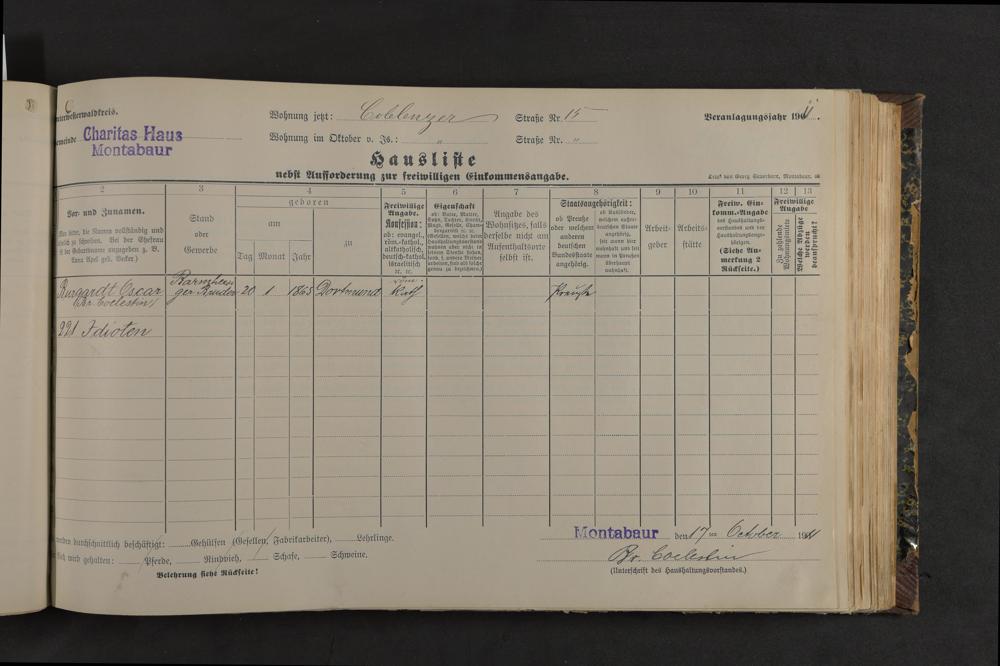 C
nterwesterwaldkreis.
emeinde Charitas Haus
Montabaur
Wohnung jetzt: Coblenzer Straße Nr. 15
Wohnung im Oktober v. Js.: " Straße Nr. "
Veranlagungsjahr 1911.
Hausliste
nebst Aufforderung zur freiwilligen Einkommensangabe.
Druck von Georg Sauerborn, Montabaur.
2 3 4 5 6 7 8 9 10 11 12 13
Vor- und Zunamen.
Man bitte, die Namen vollständig und
deutlich zu schreiben. Bei der Ehefrau
ist der Geburtsname anzugeben z. B.
Anna Apel geb. Becker.)
Stand
oder
Gewerbe
geboren
am
Tag Monat Jahr
zu
Freiwillige
Angabe.
Konfession:
ob: evangel.,
röm.-kathol.,
altkatholisch,
deutsch-kathol.
israelitisch
ꝛc. ꝛc.
Eigenschaft
ob: Vater, Mutter,
Sohn, Tochter, Knecht,
Magd, Geselle,
genau zu bezeichnen.)
Angabe des
Wohnsitzes, falls
derselbe nicht am
Aufenthaltsorte
selbst ist.
Staatsangehörigkeit:
ob Preuße
oder welchem
anderen
deutschen
Bundesstaate
angehörig.
ob Ausländer,
welchem außer-
deutschen Staate
angehörig,
seit wann hier
wohnhaft und seit
wann in Preußen
überhaupt
wohnhaft.
Arbeit-
geber
Arbeits-
stätte
Freiw. Ein-
komm.-Angabe
des Haushaltungs-
vorstandes und der
Haushaltungsange-
hörigen.
(Siehe An-
merkung 2
Rückseite.)
Freiwillige
Angabe
Zu zahlende
Wohnungsmiete
Welche Abzüge
werden
beansprucht?
Burgardt Oscar
(Br. Coelestin)
Barmherzi
ger Bruder
20 1 1865 Dortmund
röm
kath
Preuße
221 Idioten
werden durchschnittlich beschäftigt: Gehülfen (Gesellen, Fabrikarbeiter), Lehrlinge.
wird gehalten: Pferde, Rindvieh, Schafe, Schweine.
Belehrung siehe Rückseite!
Montabaur den 17 ten October 1911
Br. Coelestin
(Unterschrift des Haushaltungsvorstandes.)